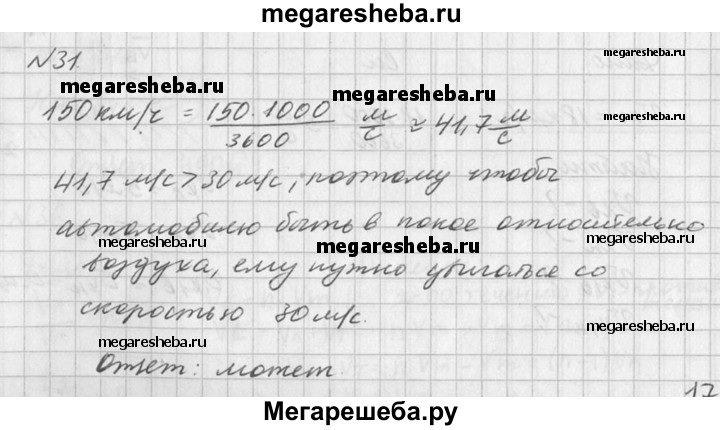 megaresheba.ru
№31.
megaresheba.ru
megaresheba.ru
150 км/ч = 150·1000/3600 м/с ≈ 41,7 м/с
megaresheba.ru
41,7 м/с > 30 м/с, поэтому чтобы
автомобилю быть в покое относительно
megaresheba.ru megaresheba.ru megaresheba.ru
воздуха, ему нужно двигаться со
скоростью 30 м/с.
megaresheba.ru megaresheba.ru
Ответ: может.
17
Мегарешеба.ру